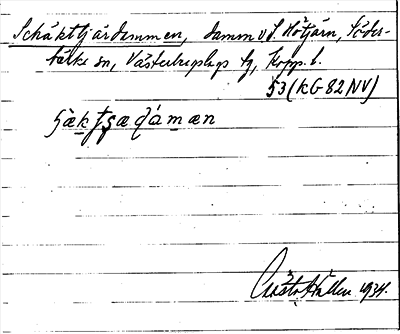 Schäkttjärdammen, damm v S. Hötjärn, Söder-
bärke sn, Västerbergslags fg, Kopp. l.
53 (kG 82 NV)
ʃäkʈʂæɖámæn
Gösta Hallen 1934.